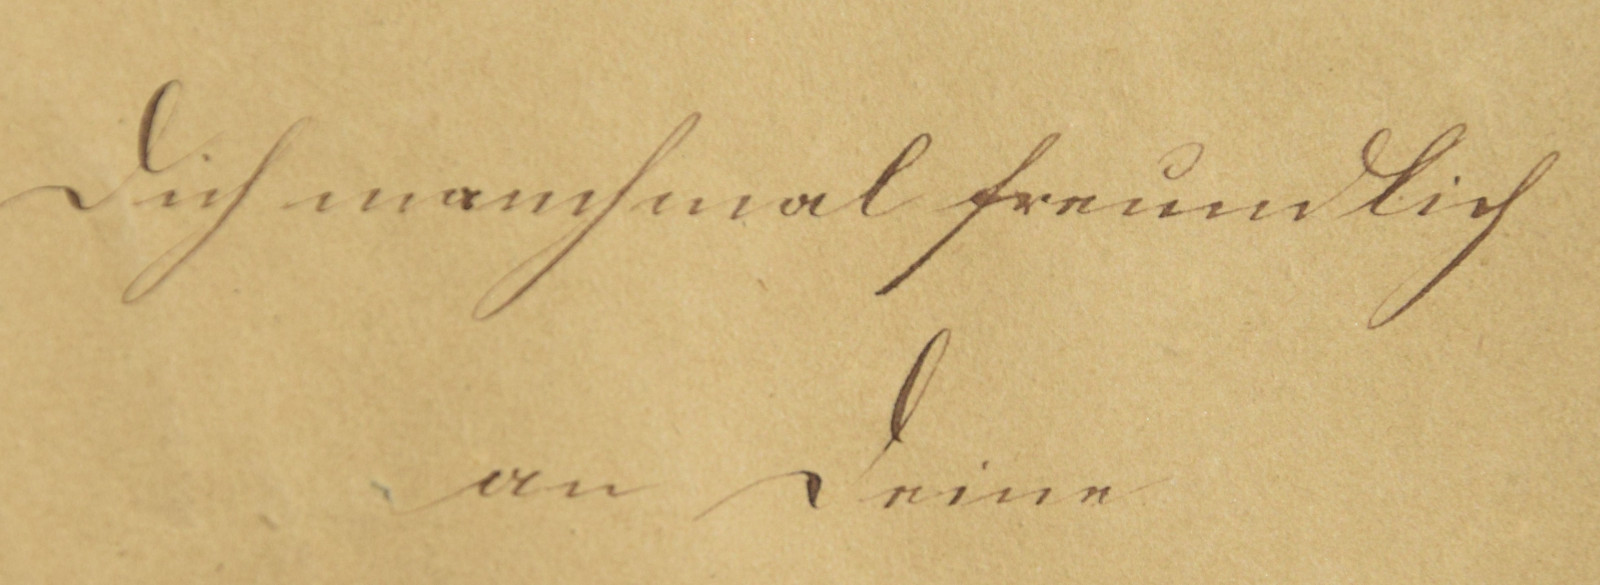 Dich manchmal freundlich
an Deine